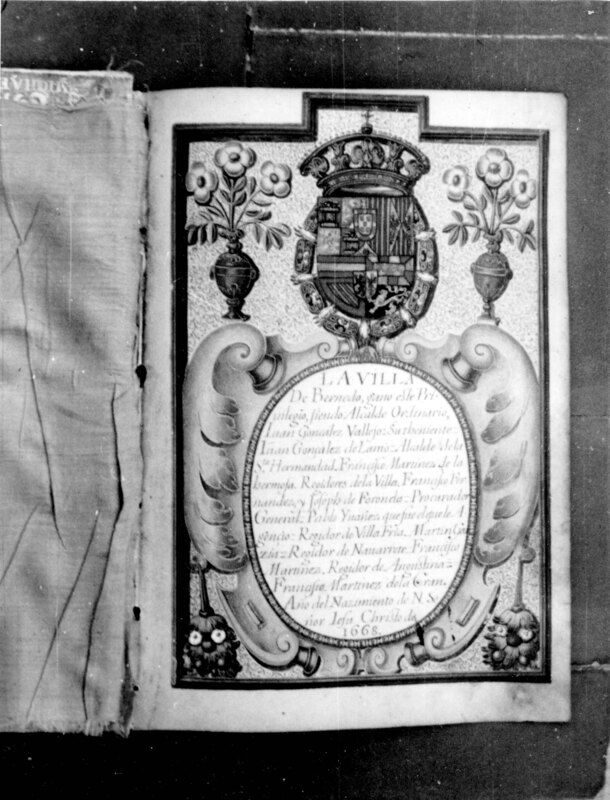 LA VILLA
De Bernedo, gano este Pri
uilegio, siendo Alcalde Ordinario,
Iuan Gonçalez Vallejo: Su theniente
Iuan Gonçalez de Lamoz: Alcalde de la
Sta Hermandad, Francisco Martinez de la
hermosa. Regidores de la Villa, Francisco Fer
nandez, y Joseph de Poronelo: Procurador
General, Pablo Yuañez, que fue el que le A
gencio: Regidor de Villa Fria, Martin Gar
zia: Regidor de Nauarrete, Francisco
Martinez, Regidor de Angustina:
Francisco Martinez de la Cram.
Año del Nazimiento de N. Se
ñor Iesu Christo de
1668